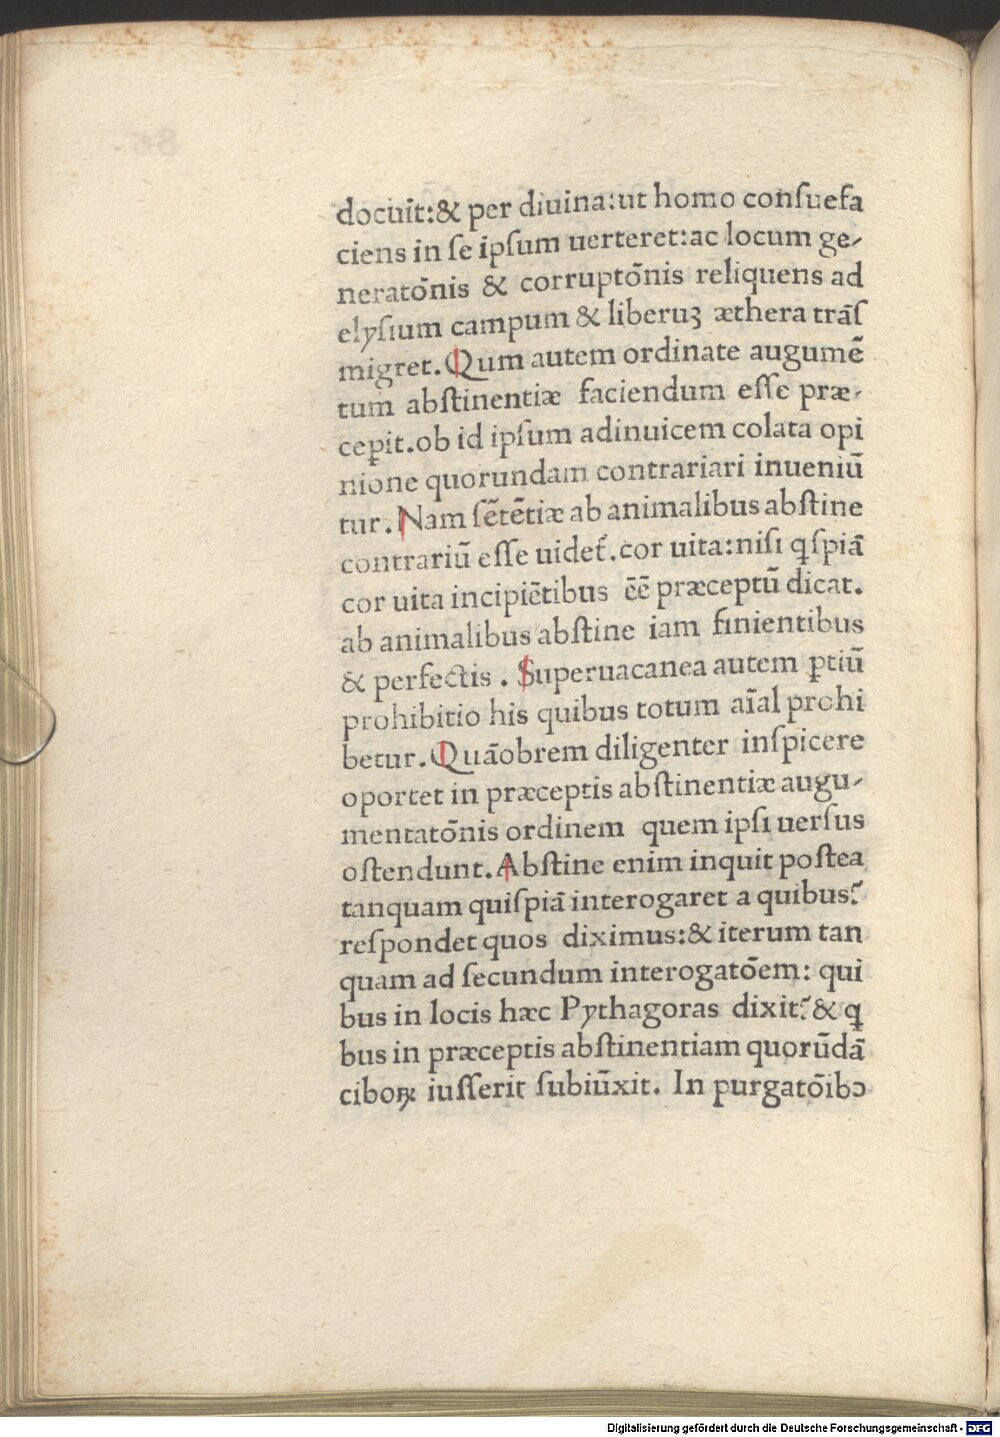 docuit:& per diuina:ut homo conſuefa
ciens in ſe ipſum uerteret:ac locum ge-
neratōnis & corruptōnis reliquens ad
elyſium campum & liberuꝫ æthera trāſ
migret. Qum autem ordinate augumē
tum abſtinentiæ faciendum eſſe præ-
cepit.ob id ipſum adinuicem colata opi
nione quorundam contrariari inueniū
tur. Nam ſētētiæ ab animalibus abſtine
contrariū eſſe uidet᷑.cor uita:niſi qſpiā
cor uita incipiētibus ēē præceptū dicat.
ab animalibus abſtine iam finientibus
& perfectis . Superuacanea autem ꝑtiū
prohibitio his quibus totum aīal prohi
betur. Quāobrem diligenter inſpicere
oportet in præceptis abſtinentiæ augu-
mentatōnis ordinem quem ipſi uerſus
oſtendunt. Abſtine enim inquit poſtea
tanquam quiſpiā interogaret a quibus?
reſpondet quos diximus:& iterum tan
quam ad ſecundum interogatōem: qui
bus in locis hæc Pythagoras dixit? & ꝗ
bus in præceptis abſtinentiam quorūdā
ciboꝝ iuſſerit ſubiūxit. In purgatōibꝯ
Digitalisierung gefördert durch die Deutsche Forschungsgemeinschaft - DFG